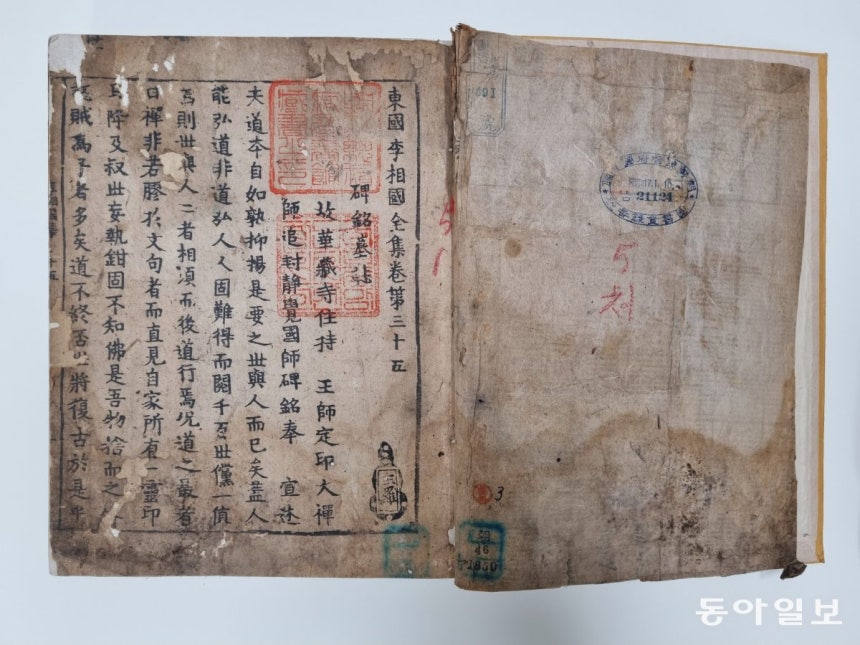 東國李相國全集卷第三十五
碑銘墓誌
故華藏寺住持 王師定印大禪
師追封静覺國師碑銘奉 宣述
夫道本自如孰抑揚是要之世與人而已矣蓋人
能弘道非道弘人人固難得而閱千百世儻一値
焉則世與人二者相須而後道行焉况道之最者
口禪非若膠於文句者而直見自家所有一靈印
且降及叔世妄執鉗固不知佛是吾物捨而之
賊爲子者多矣道不終否必將復古於是乎
21121
5
3
46
1850
동아일보